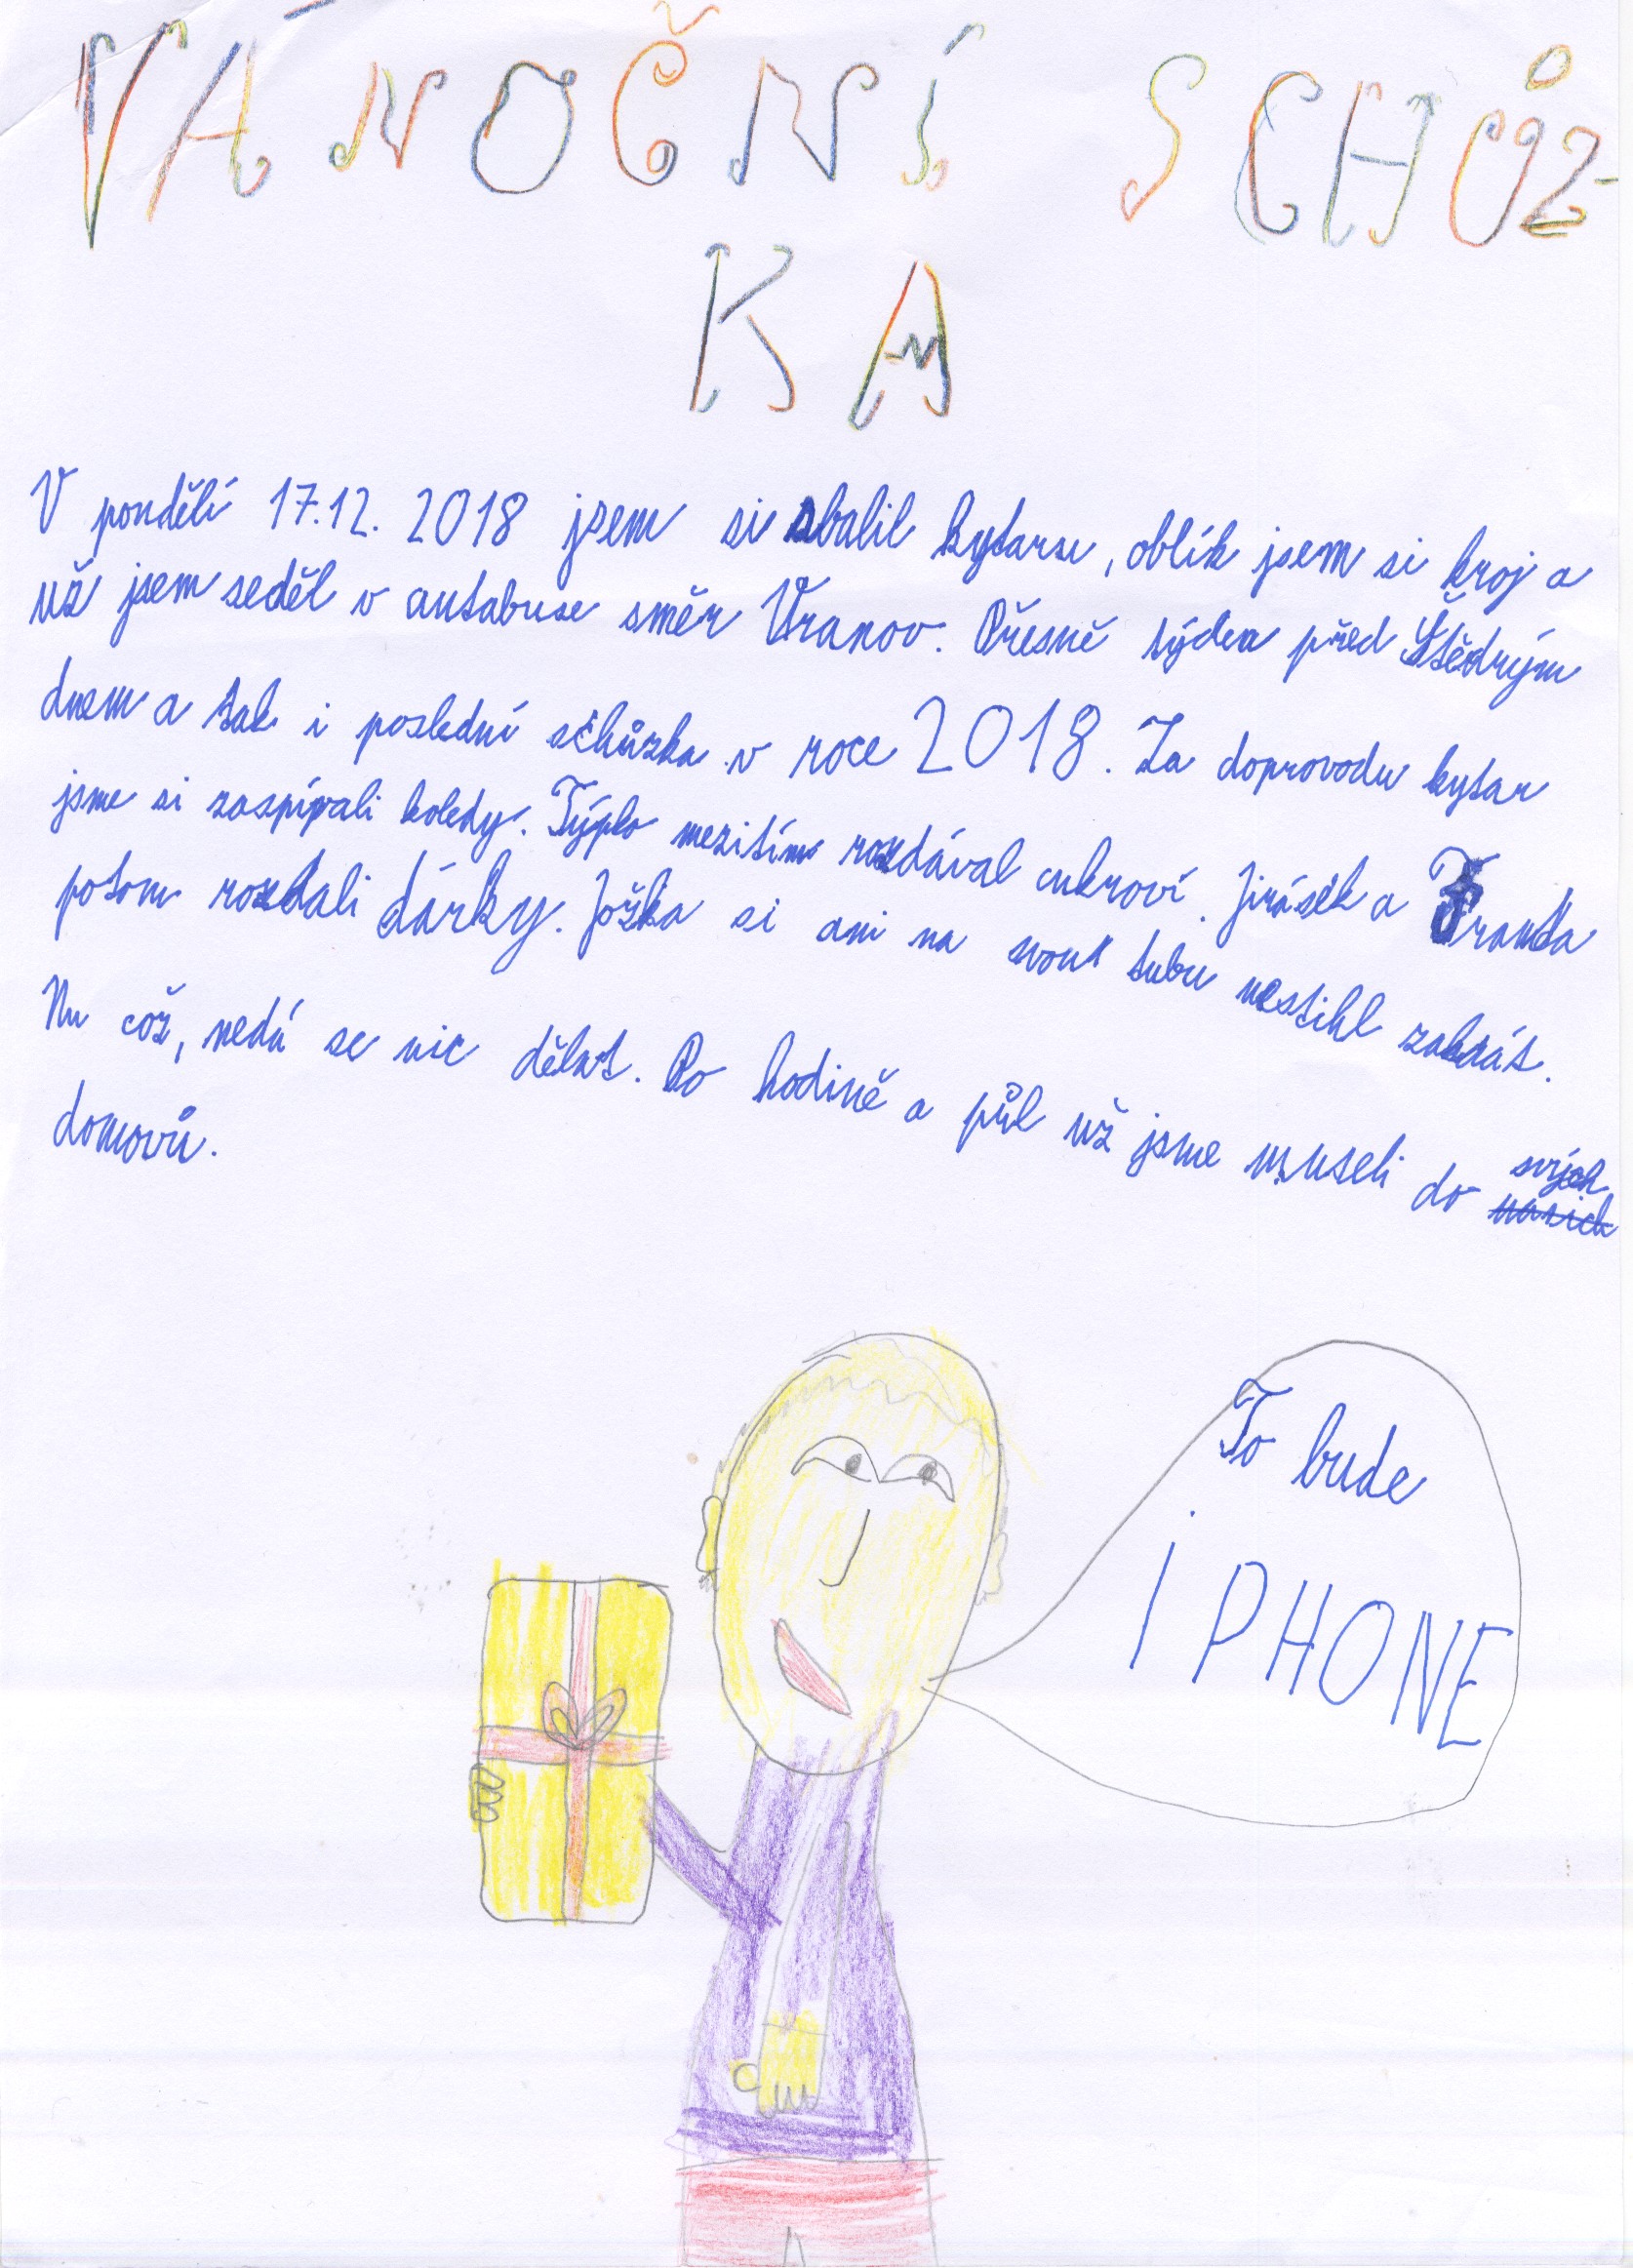 VÁNOČNÍ SCHŮZ-
KA
V pondělí 17.12. 2018 jsem si sbalil kytaru, oblík jsem si kroj a
už jsem seděl v autabuse směr Vranov. Přesně týden před Štědrým
dnem a tak i poslední schůzka v roce 2018. Za doprovodu kytar
jsme si zaspívali koledy. Týpko mezitím rozdával cukroví. Jirásek a Franta
potom rozdali dárky. Jožka si ani na svou tubu nestihl zahrát.
Nu což, nedá se nic dělat. Po hodině a půl už jsme museli do svých našich
domovů.
To bude
iPHONE